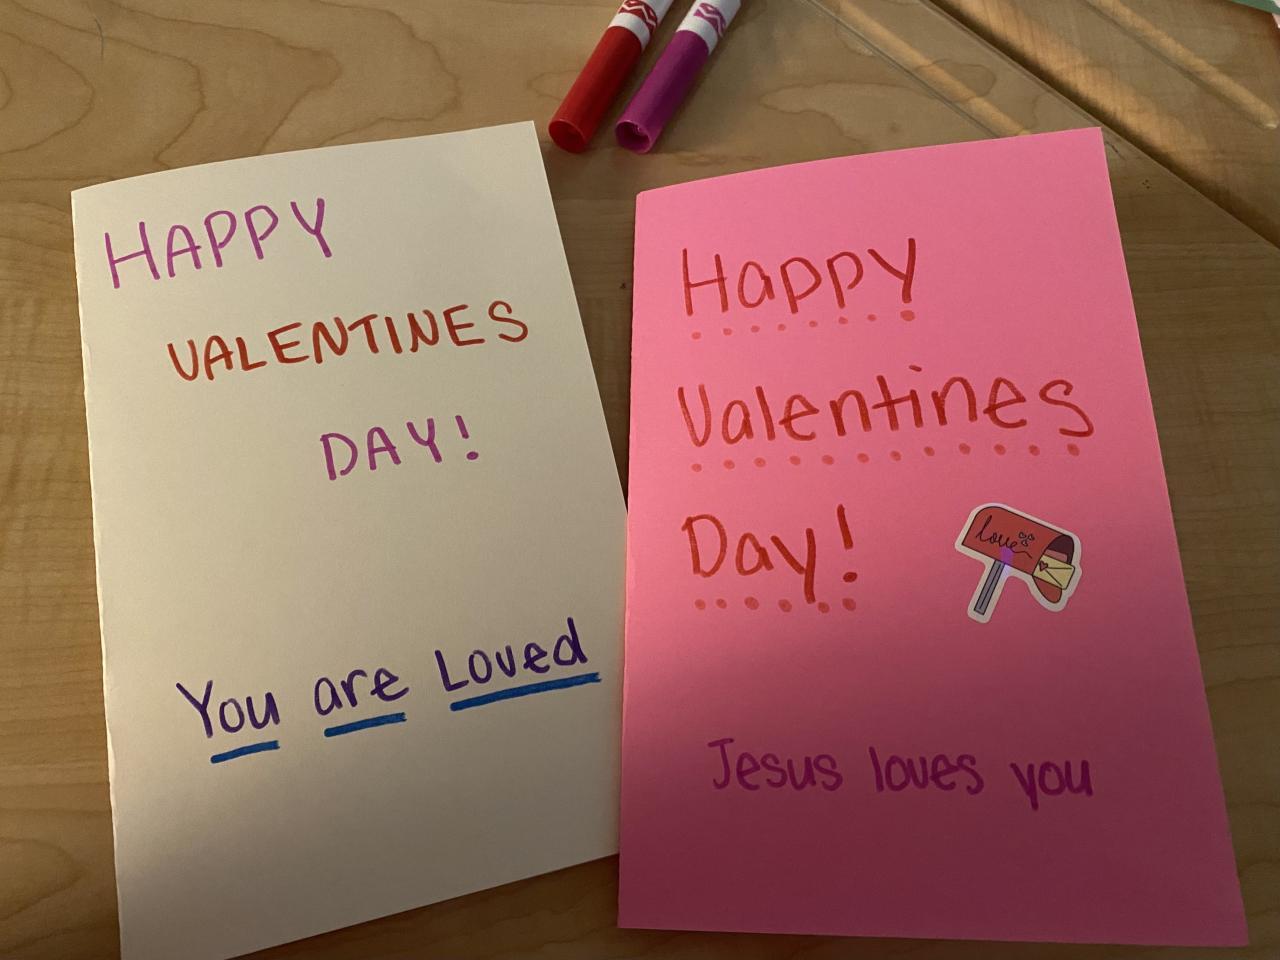 HAPPY
VALENTINES
DAY!
You are Loved
Happy
Valentines
Day!
love
Jesus loves you